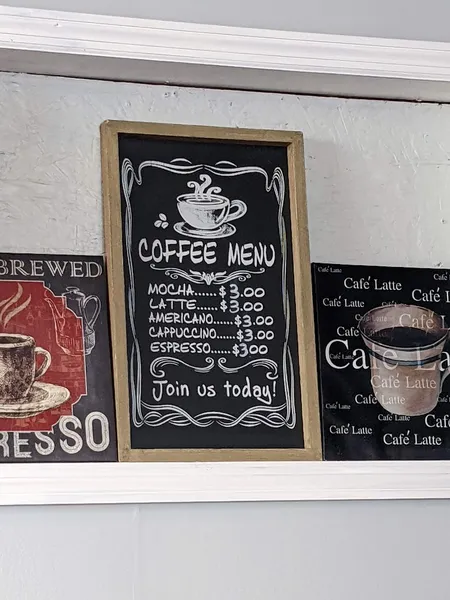 BREWED
RESSO
COFFEE MENU
MOCHA......$3.00
LATTE......$3.00
AMERICANO....$3.00
CAPPUCCINO....$3.00
ESPRESSO.....$300
Join us today!
Café Latte
Café Latte
Café L
Café Latte
Café Latte
Café
Café Latte
Café La
Café Latte
Café Latte
Café Latte
Café Latte
Café
Café Latte
Café Latte